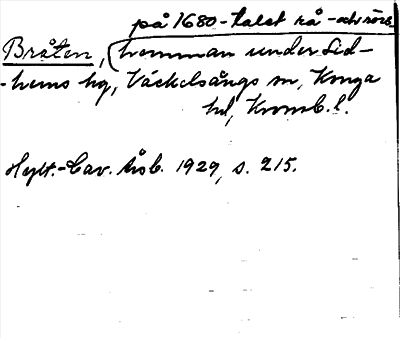 på 1680-talet rå- och rörs
Bråten, hemman under Lid-
hems hg, Väckelsångs sn, Konga
hd, Kronob. l.
Hylt.-Cav. årsb. 1929, s. 215.